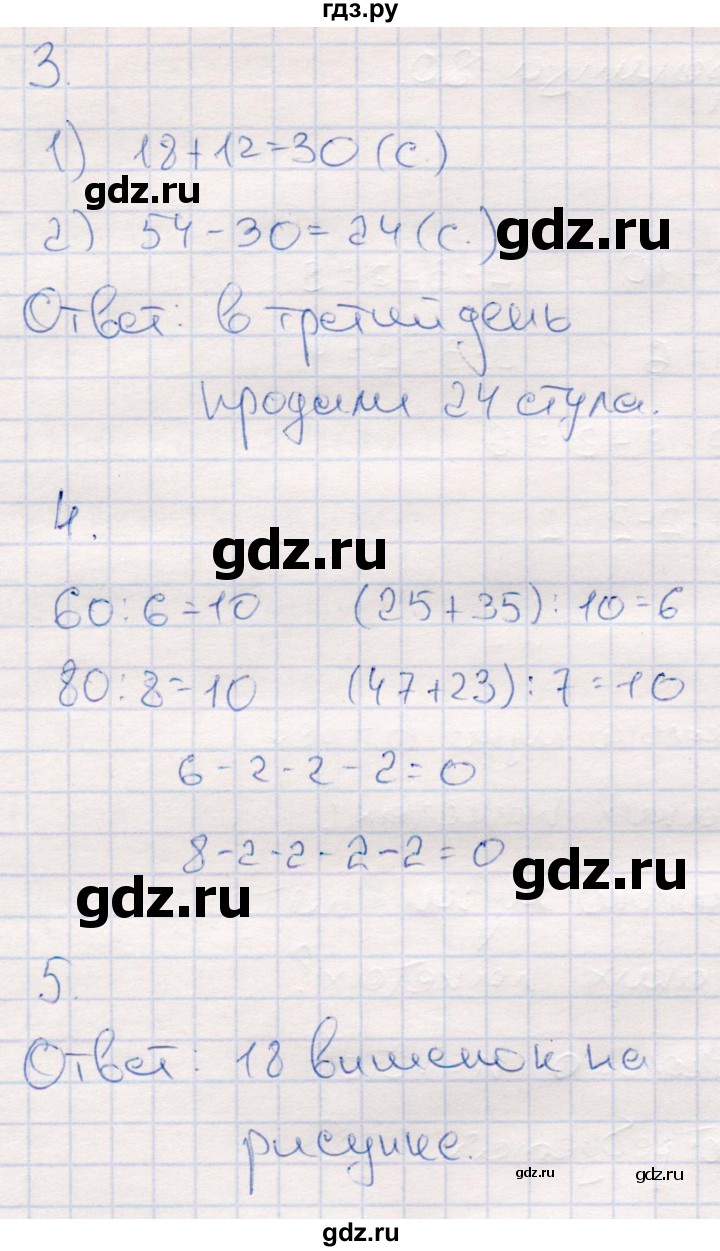 гдз.ру
3.
1) 18+12=30 (с.)
gdz.ru
2) 54-30=24 (с.)
gdz.ru
Ответ: в третий день
продали 24 стула.
4.
gdz.ru
60:6=10 (25+35):10=6
80:8=10 (47+23):7=10
6-2-2-2=0
8-2-2-2-2=0
gdz.ru
gdz.ru
5.
Ответ: 18 вишенок на
рисунке.
gdz.ru
gdz.ru
gdz.ru